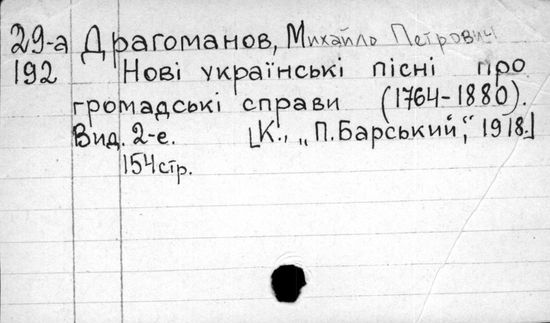 29-а Драгоманов, Михайль Петрович
192 Нові українські пісні про
громадські справи (1764-1880).
Вид. 2-е. [К., „П.Барський", 1918.]
154 стр.